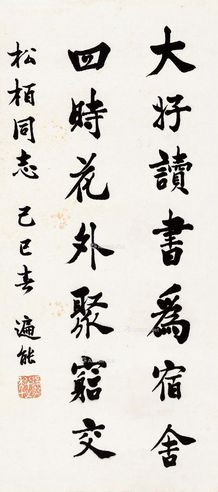 大好讀書爲宿舍
四時花外聚窮交
松栢同志 己巳春 遍能